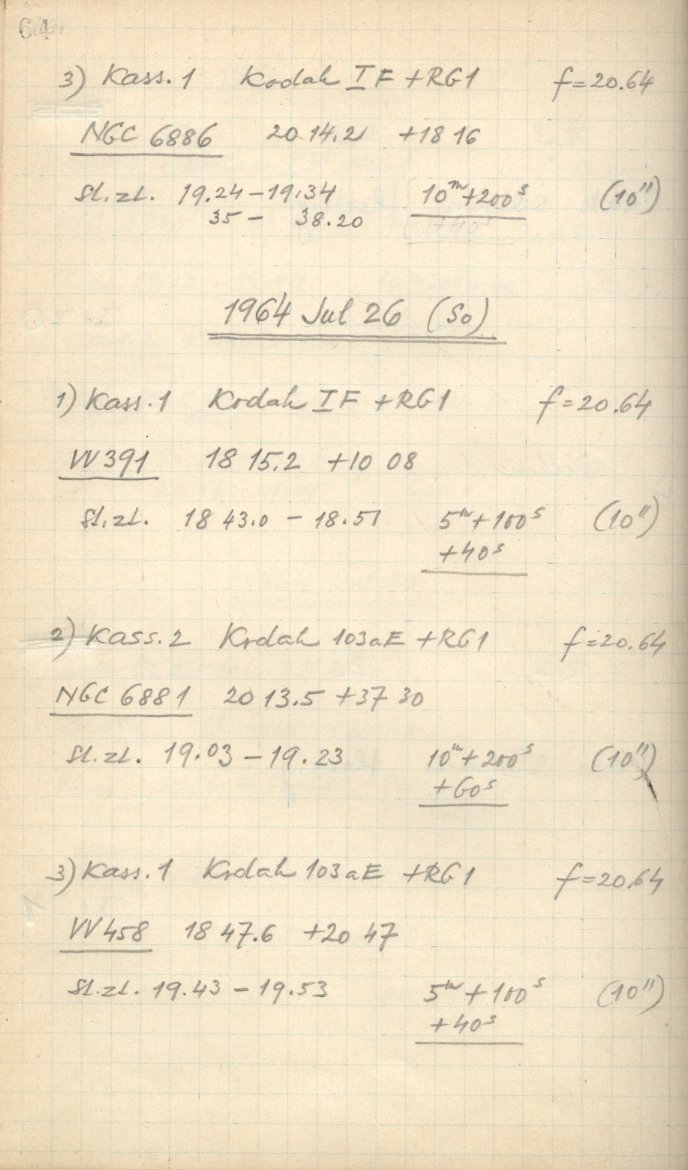 64
3) Kass. 1 Kodak I F + RG1 f = 20.64
NGC 6886 20 14.2 +18 16
St. zt. 19.24 – 19.34 10ᵐ+200ˢ (10")
35 – 38.20
1964 Jul 26 (So)
1) Kass. 1 Kodak I F + RG1 f = 20.64
VV 391 18 15.2 +10 08
St. zt. 18 43.0 – 18.51 5ᵐ+100ˢ (10")
+40ˢ
2) Kass. 2 Kodak 103aE + RG1 f = 20.64
NGC 6881 20 13.5 +37 30
St. zt. 19.03 – 19.23 10ᵐ+200ˢ (10")
+60ˢ
3) Kass. 1 Kodak 103aE + RG1 f = 20.64
VV 458 18 47.6 +20 47
St. zt. 19.43 – 19.53 5ᵐ+100ˢ (10")
+40ˢ